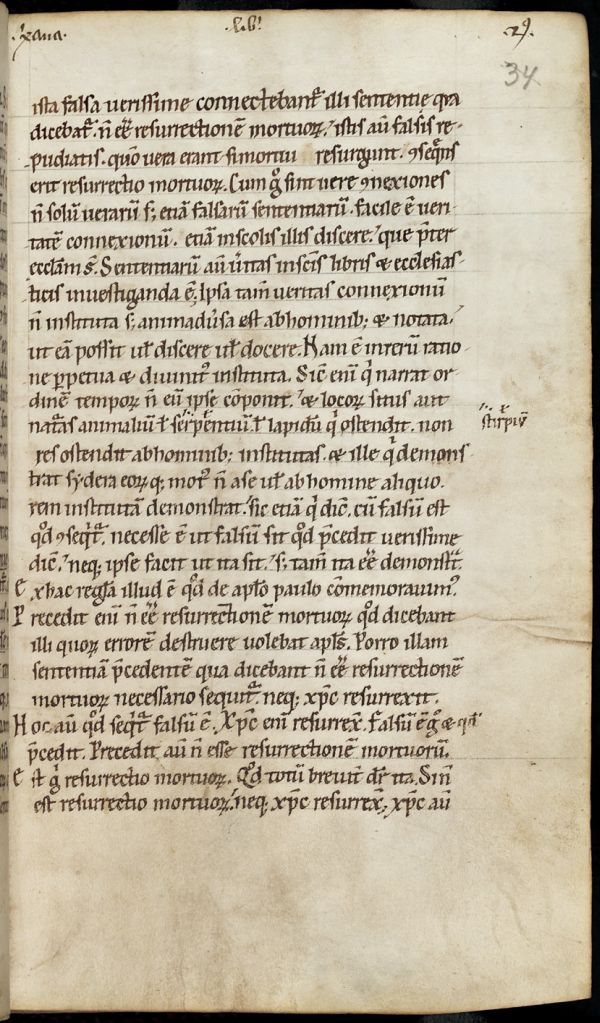 .xana. .lib'. 29.
34
ista falsa uerissime connectebant᷑ illi sententię qua
dicebat᷑. n̄ ee͞ resurrectionē mortuoꝝ. istis aū falsis re-
pudiatis. quō uera erant si mortui resurgunt. ꝯseq̄ns
erit resurrectio mortuoꝝ. Cum g͛o sint uere ꝯnexiones
n̄ solū ueraru s; etiā falsarū sententiarū. facile ē ueri
tatē connexionū. etiā inscolis illis discere. que p̄ter
eccl̄am s̄. Sententiarū aū u͛itas insc̄is libris & ecclesias-
ticis inuestiganda ē; Ipsa tam̄ ueritas connexionū
n̄ instituta s; animadu͛sa est abhominib; & notata.
ut eā possit ul̓ discere ul̓ docere. Nam ē inreru ratio-
ne ꝑpetua & diuinit᷒ instituta. Sic̄ eni q͛ narrat or
dinē tempoꝝ n̄ eū ipse cōponit. & locoꝝ situs aut
nat᷑as animaliū ł serpentiū ł lapidū q͛ ostendit. non
stirpiū
res ostendit abhominib; institutas. & ille q͛ demons
trat sydera eoꝝ q; mot᷒ n̄ ase ul̓ abhomine aliquo.
rem institutā demonstrat. sic etiā q͛ dic̄. cū falsū est
qd̓ ꝯseq͛t᷑. necesse ē ut falsū sit qd̓ p̄cedit uerissime
dic̄. neq; ipse facit ut ita sit. s; tam̄ ita ee͞ demonst᷑t.
E xhac regl̄a illud ē qd̓ de apl̄o paulo cōmemorauim᷒.
P recedit eni n̄ ee͞ resurrectionē mortuoꝝ qd̓ dicebant
illi quoꝝ errorē destruere uolebat apl̄s. Porro illam
sententiā p̄cedentē qua dicebant n̄ ee͞ resurrectionē
mortuoꝝ necessario sequit᷑. neq; xp̄c resurrexit.
H oc aū qd̓ seq͛t᷑ falsū ē. Xp̄c eni resurrex̄. falsū ē g͛o & qd̓
p̄cedit. Precedit aū n̄ esse resurrectionē mortuorū.
E st g͛ resurrectio mortuoꝝ. Qd̓ totū breuit͛ dr̄ ita. Si n̄
est resurrectio mortuoꝝ. neq; xp̄c resurrex̄; xp̄c aū